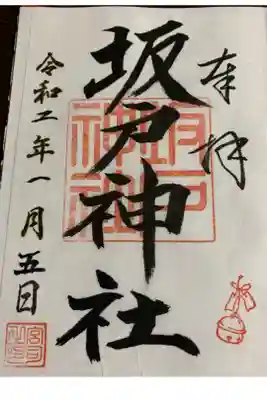 奉拝
坂戸神社
令和二年一月五日